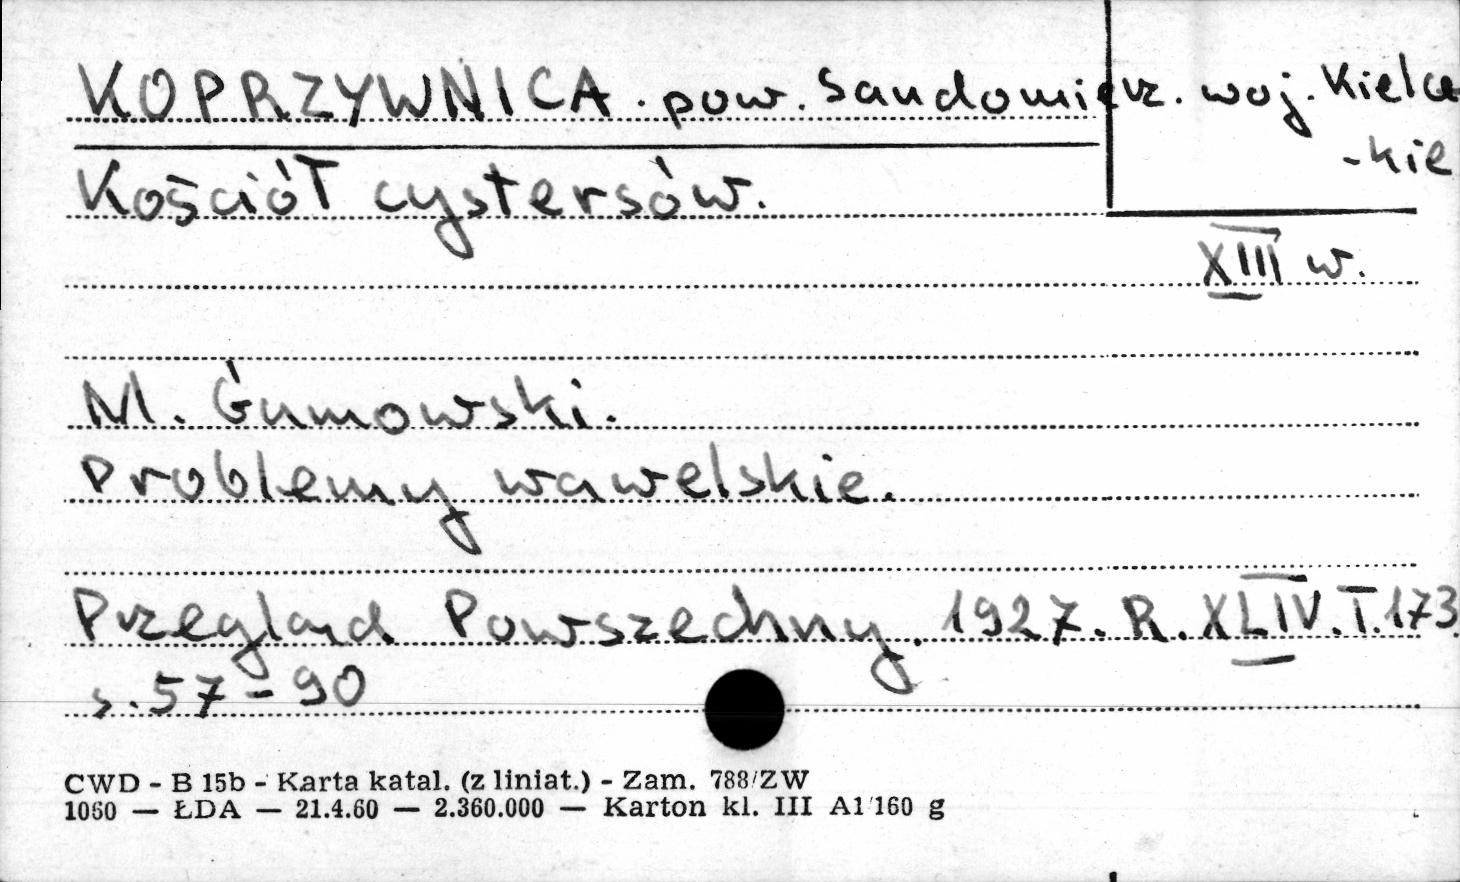 KOPRZYWNICA . pow. Sandomierz. woj. Kielec
-kie
Kościół cystersów.
XIII w.
M. Gumowski.
Problemy wawelskie.
Przegląd Powszechny. 1927. R. XLIV. T. 173.
s. 57-90
CWD - B 15b - Karta katal. (z liniat.) - Zam. 788/ZW
1060 — ŁDA — 21.4.60 — 2.360.000 — Karton kl. III A1/160 g